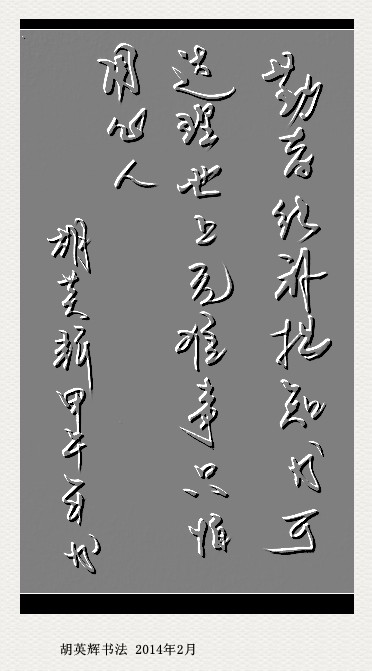 勤奋能补拙知书可
达理世上无难事只怕
用心人
胡英辉甲午书
胡英辉书法 2014年2月